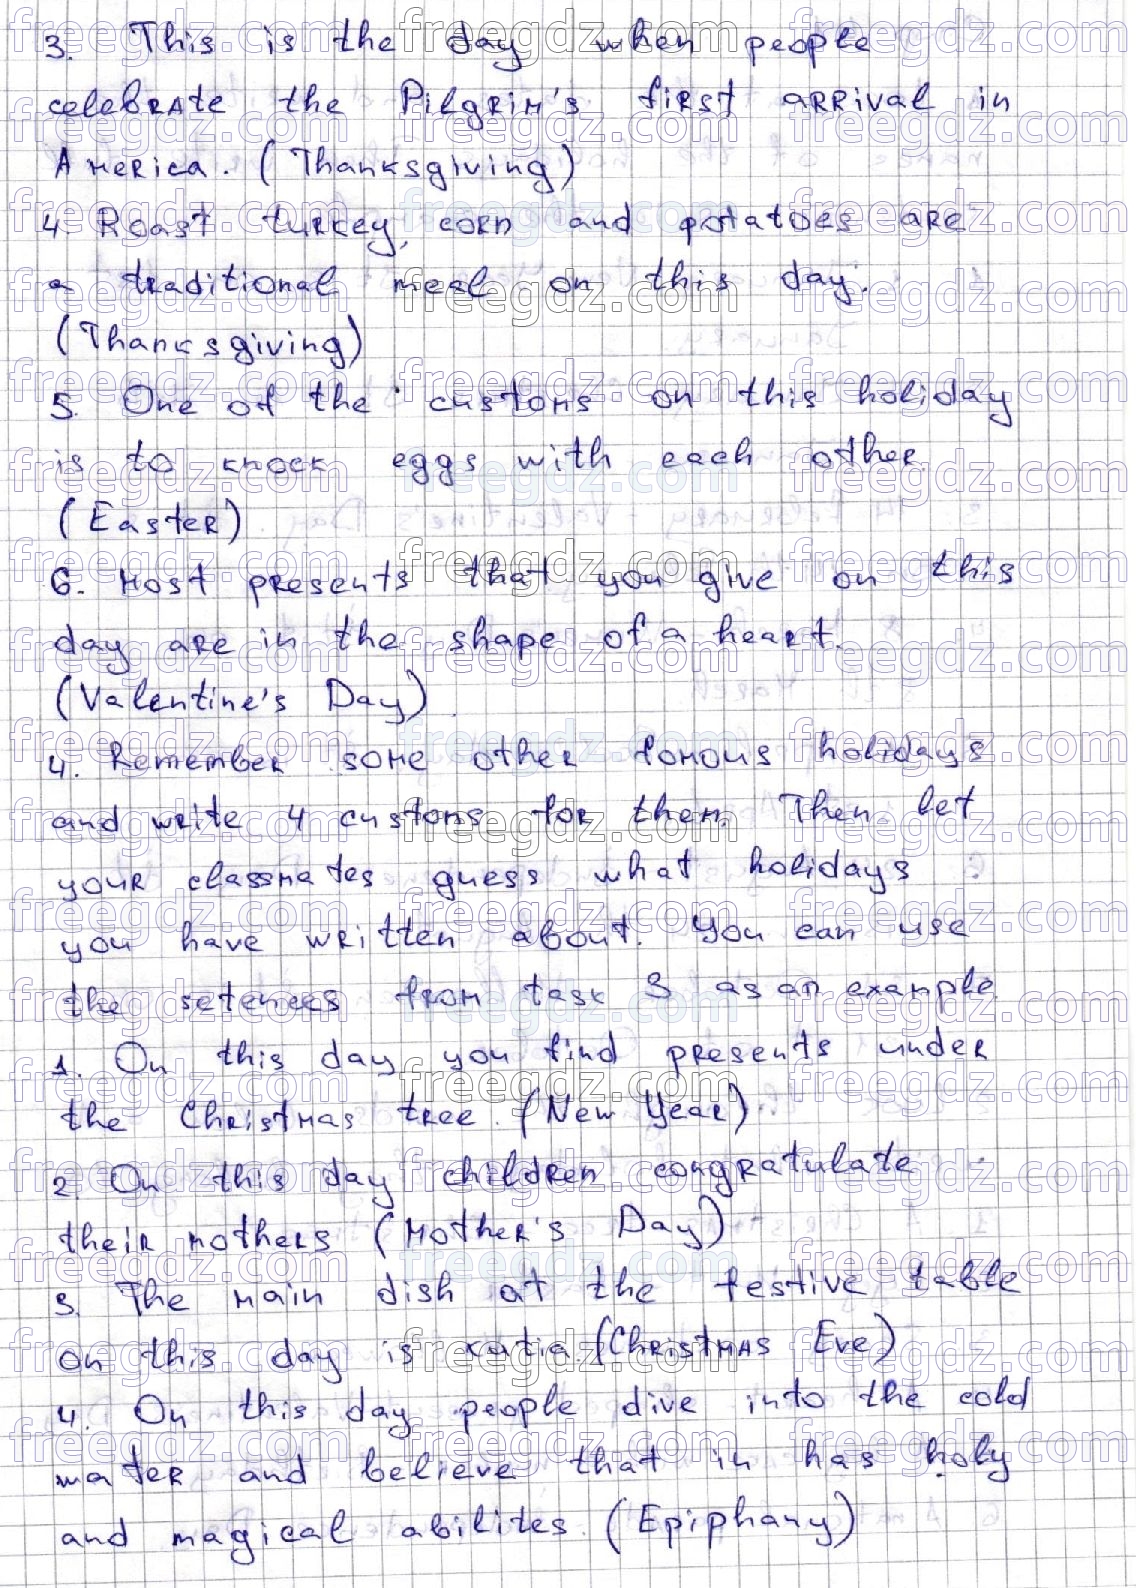 3. This is the day when people
celebrate the Pilgrim's first arrival in
America. (Thanksgiving)
4. Roast turkey, corn and potatoes are
a traditional meal on this day.
(Thanksgiving)
5. One of the customs on this holiday
is to knock eggs with each other.
(Easter)
6. Most presents that you give on this
day are in the shape of a heart.
(Valentine's Day).
4. Remember some other famous holidays
and write 4 customs for them. Then let
your classmates guess what holidays
you have written about. You can use
the setences from task 3 as an example.
1. On this day you find presents under
the Christmas tree. (New Year)
2. On this day children congratulate
their mothers (Mother's Day)
3. The main dish at the festive table
on this day is kutia. (Christmas Eve)
4. On this day people dive into the cold
water and believe that in has holy
and magical abilites. (Epiphany)